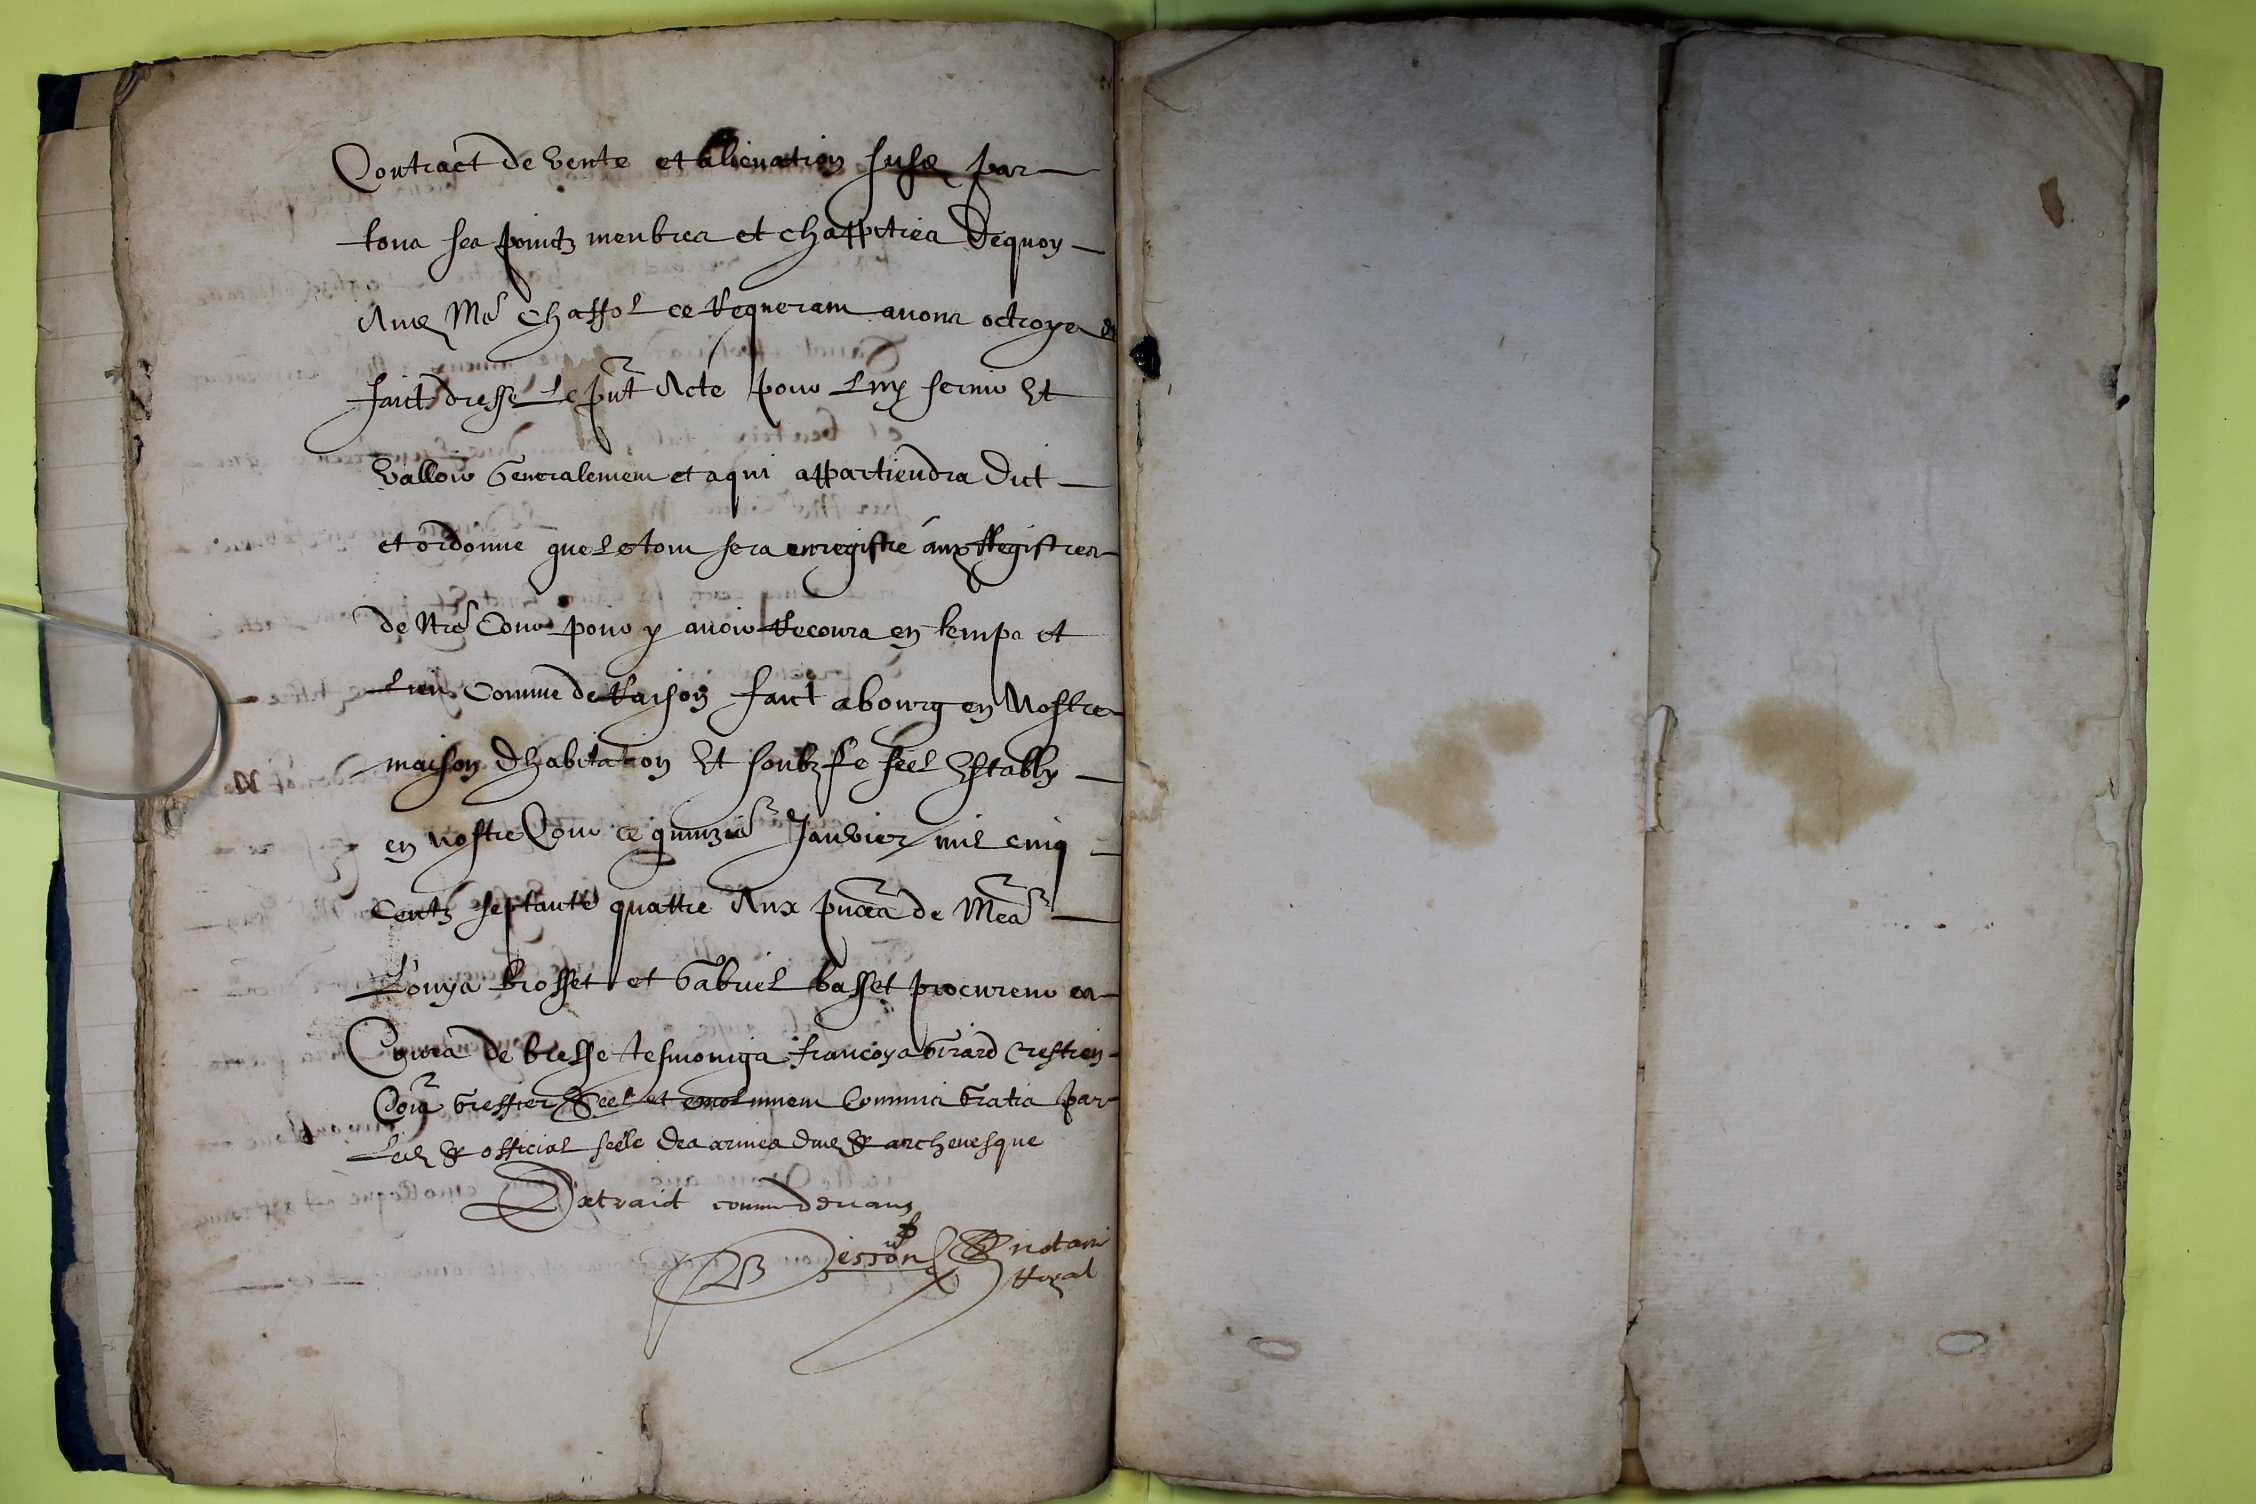 Contract de vente et allienation susd par
tous ses poinctz menbres et chappitres dequoy
Aud Me Chassol ce Requeram avons octroye et
faict dresse Le pnt Acte pour Luy servir Et
valloir Generalement et a qui appartiendra Dict
et ordonne que le tout sera enregistre aux Registres
de Ntre Cour pour y avoir Recours en temps et
Lieu Comme de Raison faict a bourg en Nostre
maison d'habitation Et soubz le seel Estably
en nostre Cour ce quinzie Janvier mil cinq
Centz septante quattre Aux pnces de Mes
Louys brosset et Gabriel basset procureur es
Cours de bresse tesmoings francoys Girard Crestien
Greffier Seel et emolument Commis Gratis par
Led Sr official seelé des armes dud Sr archevesque
Extraict comme devant
notaire
Royal